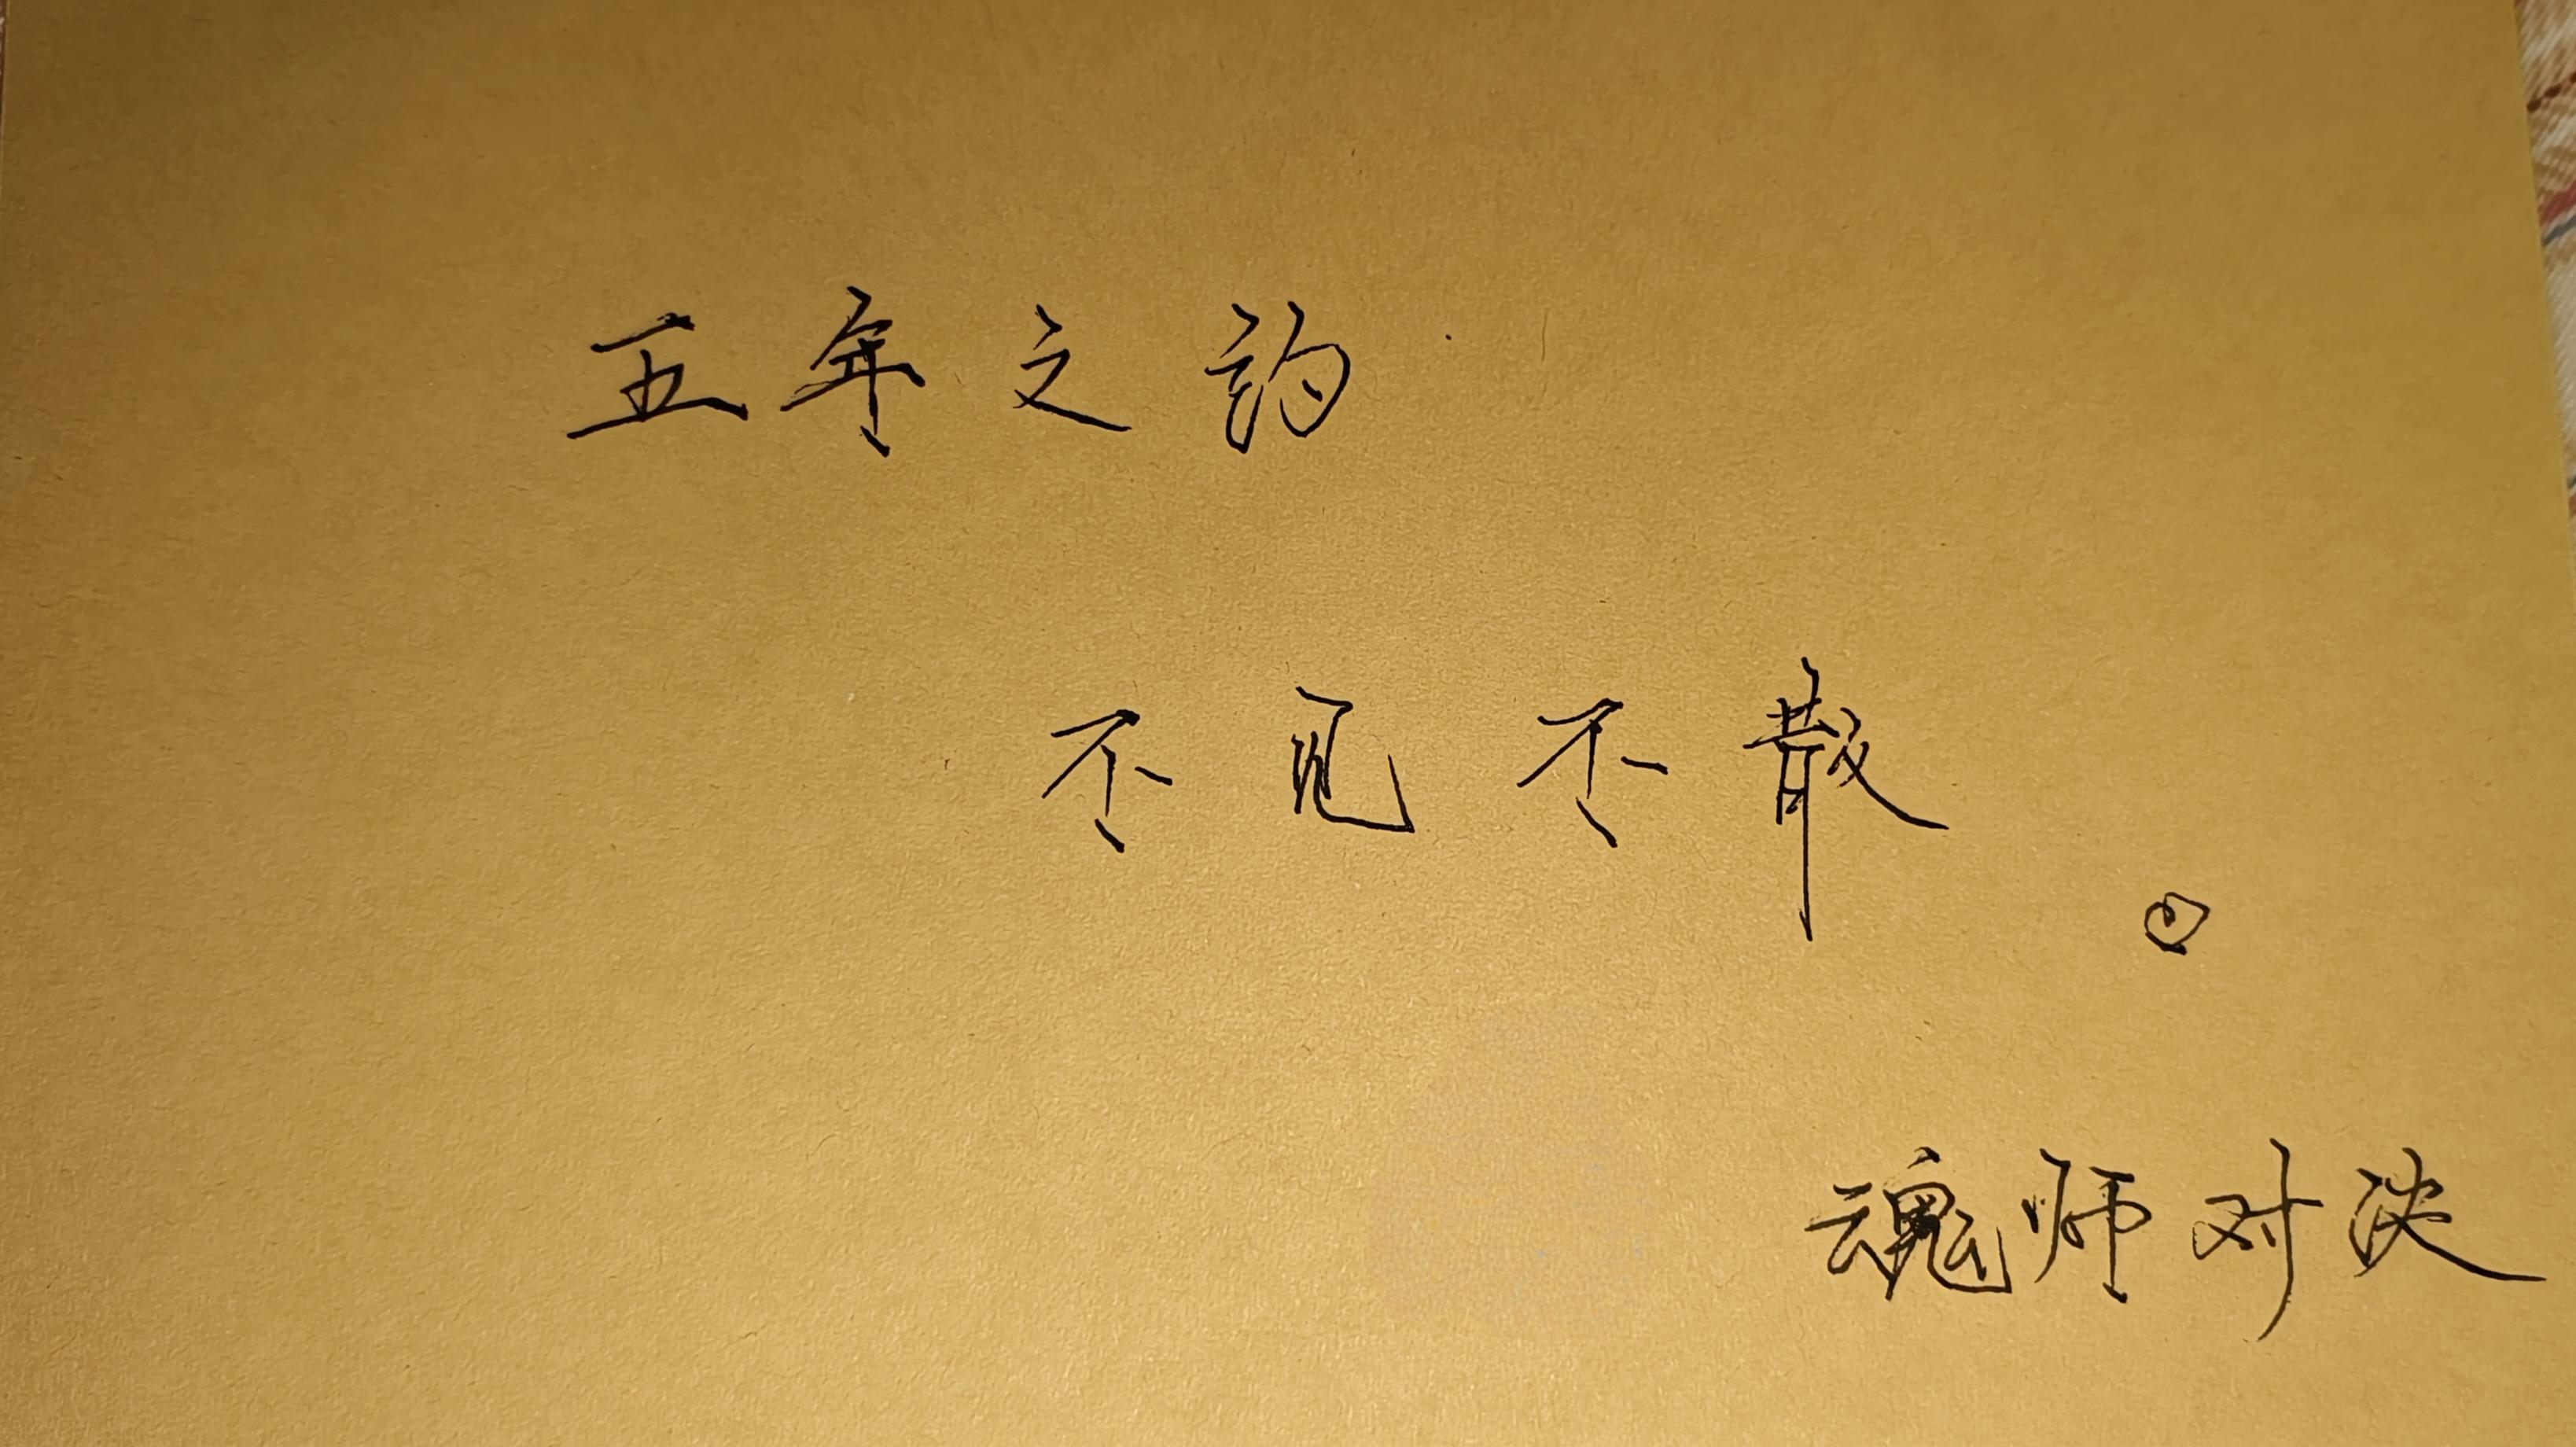 五年之约
不见不散。
魂师对决